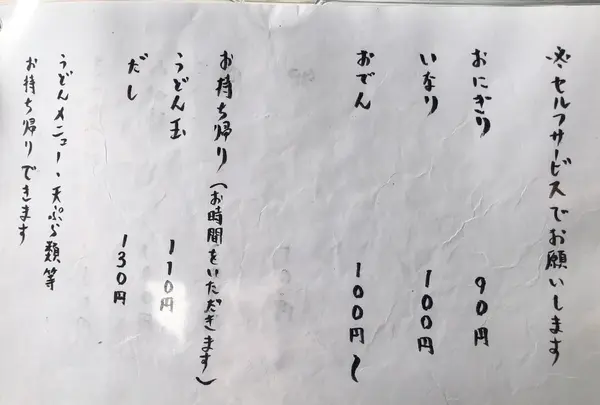 ※セルフサービスでお願いします
おにぎり 90円
いなり 100円
おでん 100円~
お持ち帰り(お時間をいただきます)
うどん玉 110円
だし 130円
うどんメニュー、天ぷら類等
お持ち帰りできます